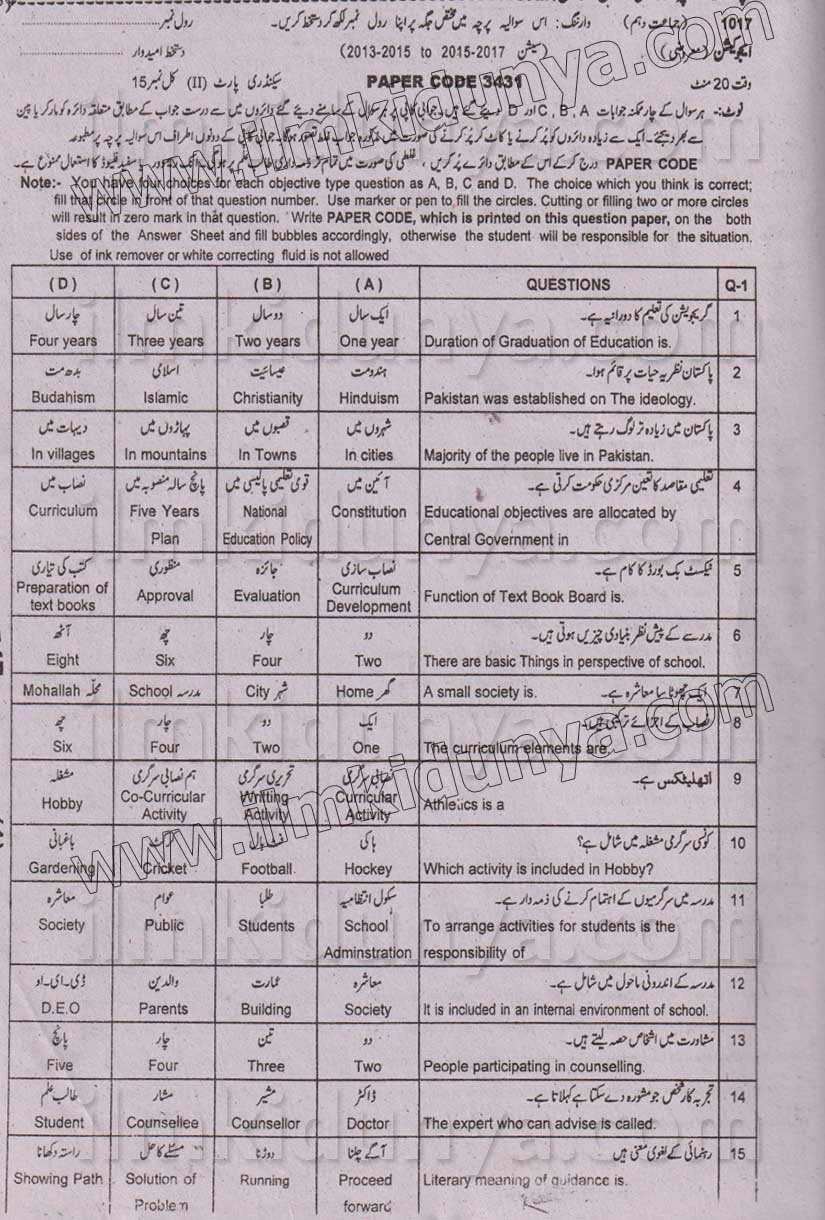 1017 (جماعت دہم) وارننگ: اس سوالیہ پرچہ میں مختص جگہ پر اپنا رول نمبر لکھ کر دستخط کریں۔ رول نمبر
ایجوکیشن (معروضی) (سیشن 2013-2015 to 2015-2017) دستخط امیدوار
وقت 20 منٹ PAPER CODE 3431 سیکنڈری پارٹ (II) کل نمبر 15
نوٹ:- ہر سوال کے چار ممکنہ جوابات A ، B ، C اور D دیئے گئے ہیں۔ جوابی کاپی پر ہر سوال کے سامنے دیئے گئے دائروں میں سے درست جواب کے مطابق متعلقہ دائرہ کو مارکر یا پین
سے بھر دیجئے۔ ایک سے زیادہ دائروں کو پُر کرنے یا کاٹ کر پُر کرنے کی صورت میں مذکورہ جواب غلط تصور ہوگا۔ جوابی کاپی کے دونوں اطراف اس سوالیہ پرچہ پر مطبوعہ
PAPER CODE درج کر کے اس کے مطابق دائرے پُر کریں، غلطی کی صورت میں تمام تر ذمہ داری طالب علم پر ہوگی۔ انک ریموور یا سفید فلیوڈ کا استعمال ممنوع ہے۔
Note:- You have four choices for each objective type question as A, B, C and D. The choice which you think is correct;
fill that circle in front of that question number. Use marker or pen to fill the circles. Cutting or filling two or more circles
will result in zero mark in that question. Write PAPER CODE, which is printed on this question paper, on the both
sides of the Answer Sheet and fill bubbles accordingly, otherwise the student will be responsible for the situation.
Use of ink remover or white correcting fluid is not allowed
( D ) ( C ) ( B ) ( A ) QUESTIONS Q-1
چار سال تین سال دو سال ایک سال گریجویشن کی تعلیم کا دورانیہ ہے۔ 1
Four years Three years Two years One year Duration of Graduation of Education is.
بدھ مت اسلامی عیسائیت ہندومت پاکستان نظریہ حیات پر قائم ہوا۔ 2
Budahism Islamic Christianity Hinduism Pakistan was established on The ideology.
دیہات میں پہاڑوں میں قصبوں میں شہروں میں پاکستان میں زیادہ تر لوگ رہتے ہیں۔ 3
In villages In mountains In Towns In cities Majority of the people live in Pakistan.
نصاب میں پانچ سالہ منصوبہ میں قومی تعلیمی پالیسی میں آئین میں تعلیمی مقاصد کا تعین مرکزی حکومت کرتی ہے۔ 4
Curriculum Five Years National Constitution Educational objectives are allocated by
Plan Education Policy Central Government in
کتب کی تیاری منظوری جائزہ نصاب سازی ٹیکسٹ بک بورڈ کا کام ہے۔ 5
Preparation of Approval Evaluation Curriculum Function of Text Book Board is.
text books Development
آٹھ چھ چار دو مدرسے کے پیش نظر بنیادی چیزیں ہوتی ہیں۔ 6
Eight Six Four Two There are basic Things in perspective of school.
Mohallah محلہ School مدرسہ City شہر Home گھر A small society is. ایک چھوٹا سا معاشرہ ہے۔ 7
چھ چار دو ایک نصاب کے اجزائے ترکیبی ہیں۔ 8
Six Four Two One The curriculum elements are
مشغلہ ہم نصابی سرگرمی تحریری سرگرمی نصابی سرگرمی اتھلیٹکس ہے۔ 9
Hobby Co-Curricular Writting Curricular Athletics is a
Activity Activity Activity
باغبانی کرکٹ فٹ بال ہاکی کونسی سرگرمی مشغلہ میں شامل ہے؟ 10
Gardening Cricket Football Hockey Which activity is included in Hobby?
معاشرہ عوام طلبا سکول انتظامیہ مدرسہ میں سرگرمیوں کے اہتمام کرنے کی ذمہ دار ہے۔ 11
Society Public Students School To arrange activities for students is the
Adminstration responsibility of
ڈی۔ای۔او والدین عمارت معاشرہ مدرسہ کے اندرونی ماحول میں شامل ہے۔ 12
D.E.O Parents Building Society It is included in an internal environment of school.
پانچ چار تین دو مشاورت میں اشخاص حصہ لیتے ہیں۔ 13
Five Four Three Two People participating in counselling.
طالب علم مشار مشیر ڈاکٹر تجربہ کار شخص جو مشورہ دے سکتا ہے کہلاتا ہے۔ 14
Student Counsellee Counsellor Doctor The expert who can advise is called.
راستہ دکھانا مسئلے کا حل دوڑنا آگے چلنا رہنمائی کے لغوی معنی ہیں 15
Showing Path Solution of Running Proceed Literary meaning of guidance is.
Problem forward
www.ilmkidunya.com